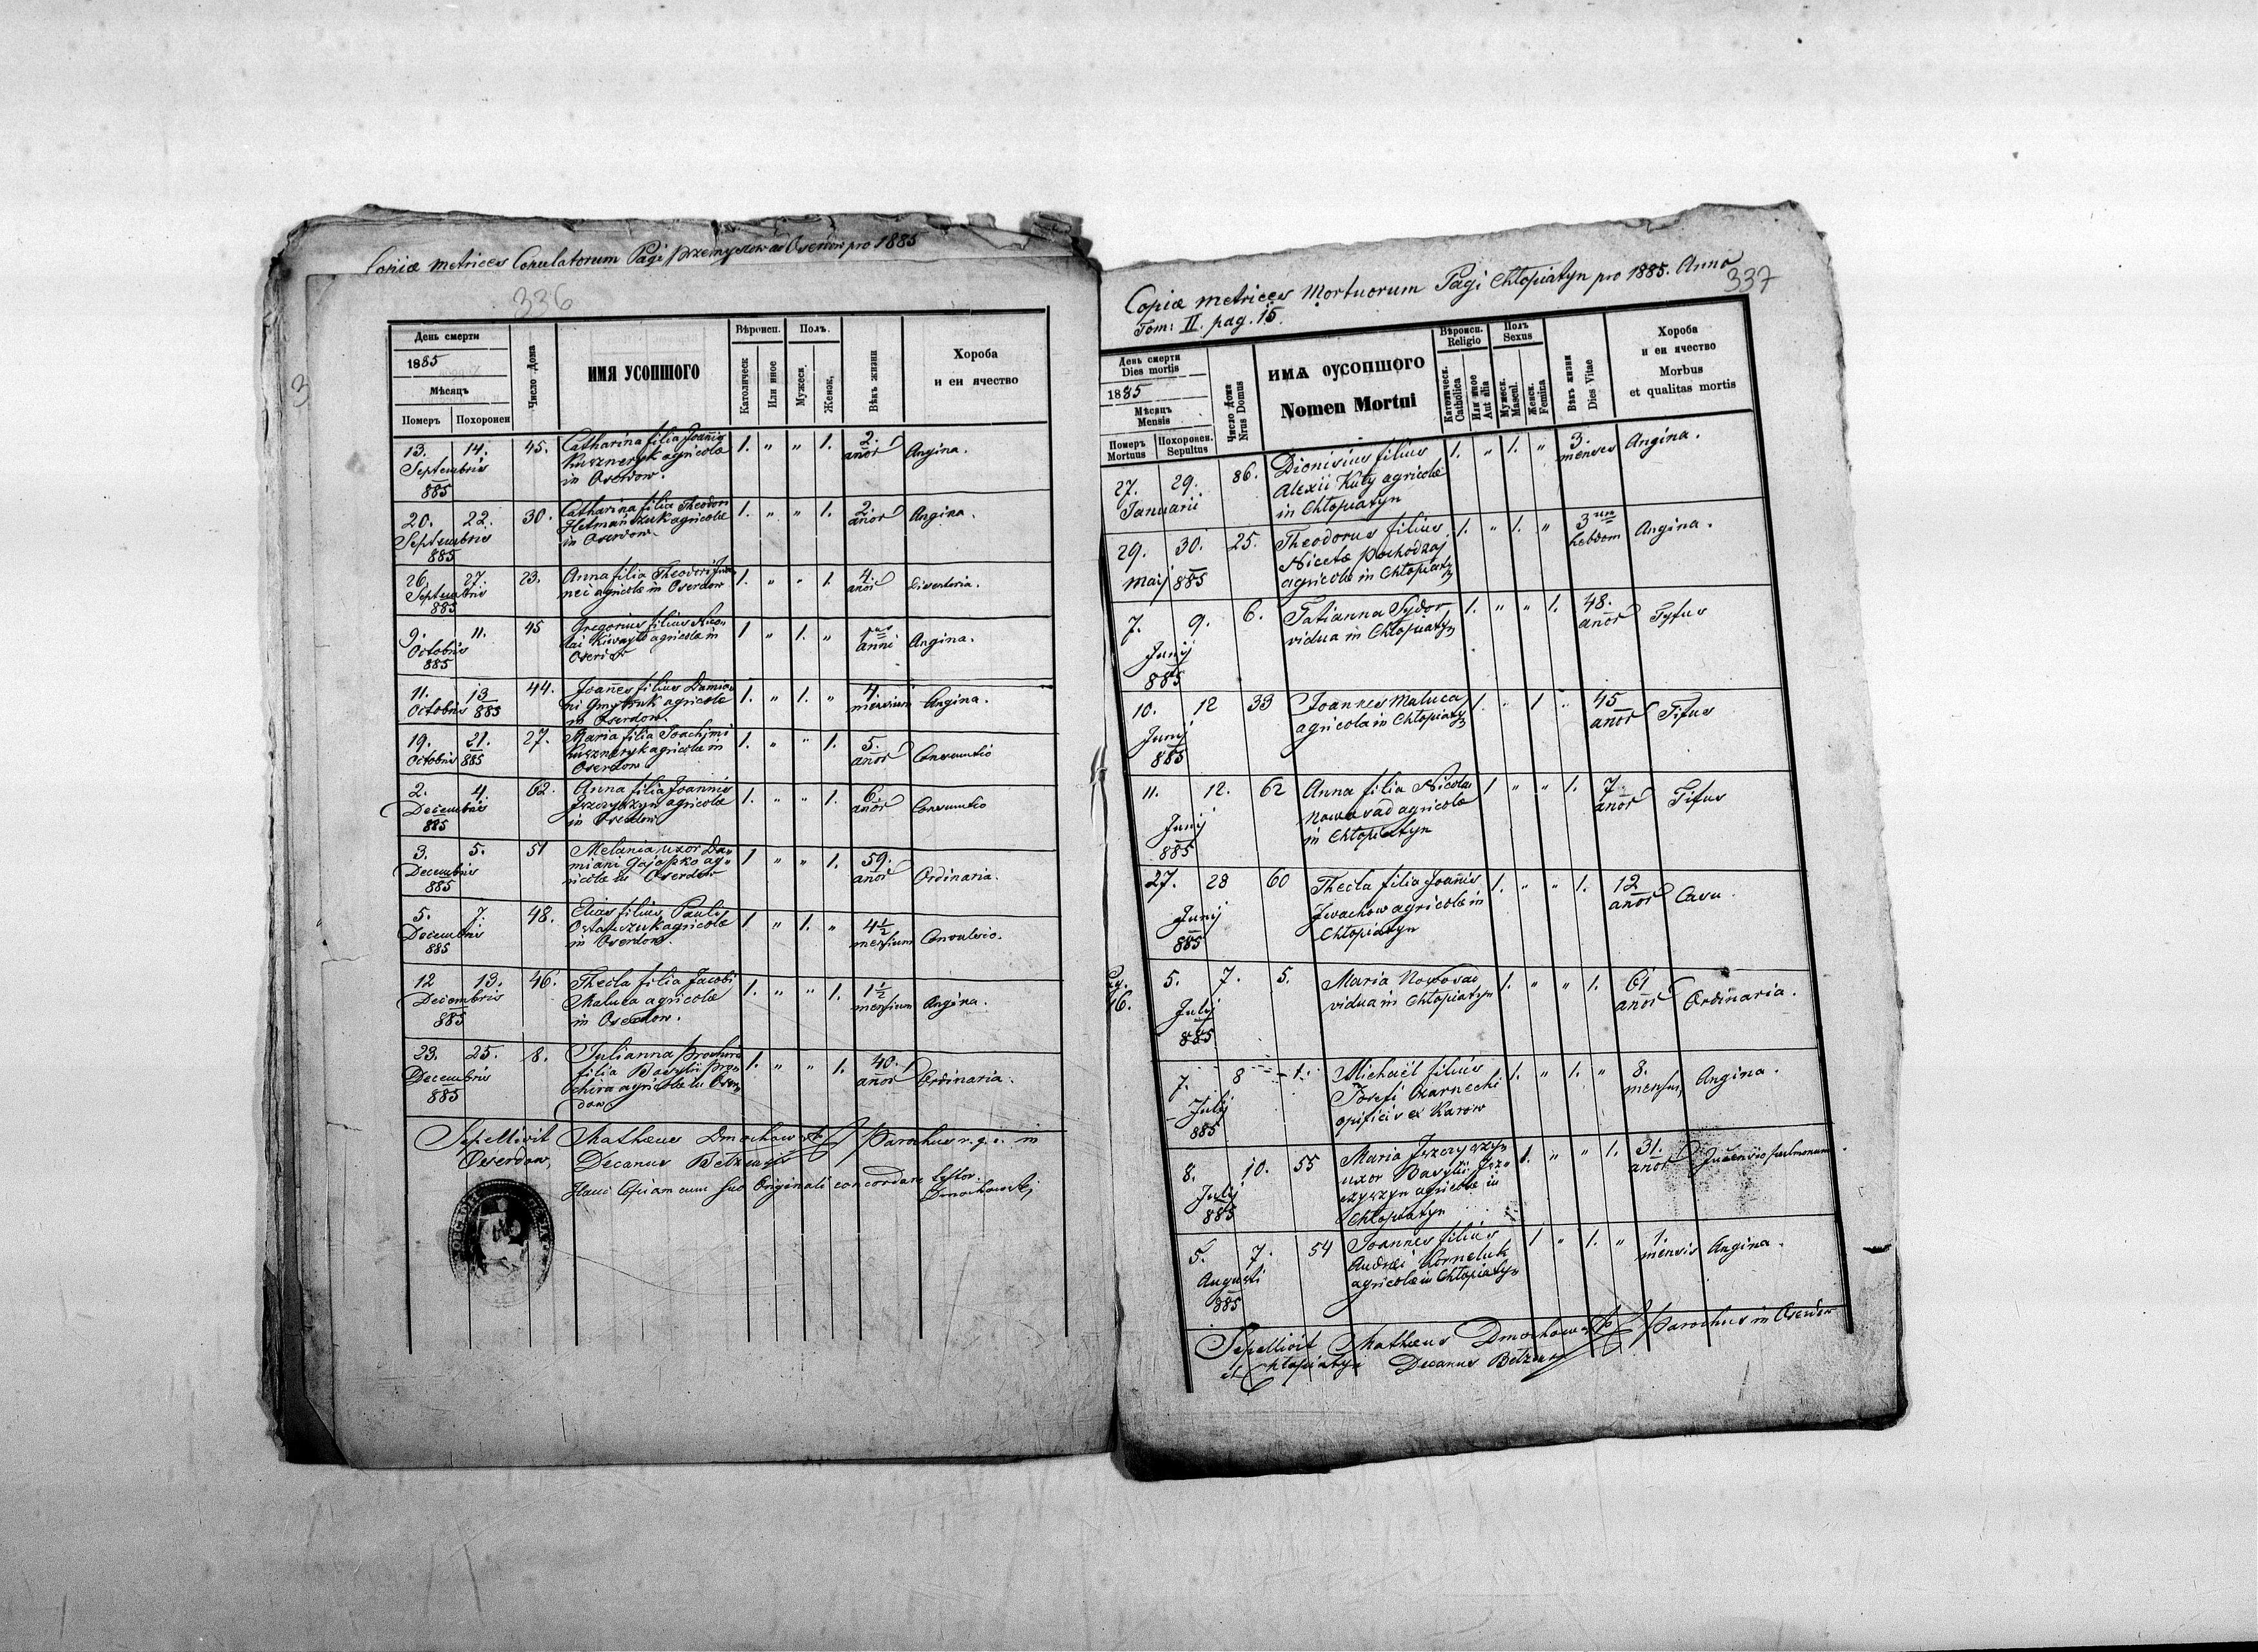 Copiæ metrices Copulatorum Pagi Przemysłow ad Oserdow pro 1885
336
День смерти
1885
Мѣсяцъ
Померъ Похоронен
Число Дома
ИМЯ УСОПШОГО
Вѣроисп.
Католическ
Или иное
Полъ.
Мужеск.
Женок.
Вѣкъ жизни
Хороба
и еи ячество
13. 14. 45. Catharina filia Joannis 1. " " 1. 2. Angina.
Septembris agricolæ anor
885 in Oserdow.
20. 22. 30. Catharina filia Theodori 1. " " 1. 2. Angina.
Septembris Hetmańczuk agricolæ anor
885 in Oserdow
26. 27. 23. Anna filia Theodori 1. " " 1. 4.
Septembris agricolæ in Oserdow anor
885
9. 11. 45 Gregorius filius Nico= 1 " 1. "
Octobris lai agricolæ in anni Angina.
885
11. 13 44. Joañes filius Damia= 1. " 1. " 4. Angina.
Octobris 885 ni agricolæ mensium
in Oserdow.
19. 21. 27. Maria filia Joachimi 1. " " 1. 5. Consumtio
Octobris 885 agricolæ in anor
Oserdow
2. 4. 62. Anna filia Joannis 1. " " 1. 6. Consumtio
Decembris agricolæ anor
885 in Oserdow
3. 5. 51 Melania uxor Da= 1 " " 1. 59. Ordinaria.
Decembris miani ag= anor
885 ricolæ in Oserdow
5. 7. 48. Elias filius Pauli 1 " 1. " 4½ Convulsio.
Decembris Ostapczuk agricolæ mensium
885 in Oserdow
12 13. 46. Thecla filia Jacobi 1. " " 1. 1½ Angina.
Decembris Maluca agricolæ mensium
885 in Oserdow.
23. 25. 8. Julianna 1. " " 1. 40. Ordinaria.
Decembris filia Basylii Pro= anor
885 chira agricolæ in Oser=
dow
Sepellivit Mathæus Dmochowski Parochus r. g. c. in
Oserdow, Decanus Bełzensis
Hanc Copiam cum suo Originali concordare testor.
Dmochowski
337
Copiæ metrices Mortuorum Pagi Chłopiatyn pro 1885. Anno
Tom: II. pag. 15.
День смерти
Dies mortis
1885
Мѣсяцъ
Mensis
Померъ Похоронен.
Mortuus Sepultus
Число Дома
Nrus Domus
ИМѦ ОУСОПШОГО
Nomen Mortui
Вѣроисп.
Religio
Католическ.
Catholica
Или иное
Aut alia
Полъ
Sexus
Мужеск.
Mascul.
Женск.
Femina
Вѣкъ жизни
Dies Vitae
Хороба
и еи ячество
Morbus
et qualitas mortis
27. 29. 86. Dionisius filius 1. " 1. " 3. Angina.
Januarii Alexii Kuty agricolæ menses
in Chłopiatyn
29. 30. 25. Theodorus filius 1. " 1. " 3 Angina.
Maij 885 Nicetæ Pochodzaj hebdom
agricolæ in Chłopiatyn
7. 9. 6. Tatianna Sydor 1. " " 1. 48. Tyfus
Junij vidua in Chłopiatyn anor
885
10. 12 33 Joannes Maluca 1. " 1 " 45 Tifus
Junij agricola in Chłopiatyn anor
885
11. 12. 62 Anna filia Nicolai 1 " " 1. 7 Tifus
Junij Nowosad agricolæ anor
885 in Chłopiatyn
27. 28 60 Thecla filia Joañis 1. " " 1. 12 Casu.
Junij Iwachow agricolæ in anor
885 Chłopiatyn
Pg. 16.
5. 7. 5. Maria Nowosad 1. " " 1. 61 Ordinaria.
Julij vidua in Chłopiatyn anor
885
7. 8 1. Michaël filius 1. " 1. " 8. Angina.
Julij Josefi Czarnecki mensium
885 opificis ex Karow
8. 10. 55 Maria 1. " " 1. 31.
Julij uxor Basylii anor pulmonum.
885 agricolæ in
Chłopiatyn
5. 7. 54 Joannes filius 1 " 1. " 1. Angina.
Augusti Andrei Korneluk mensis
885 agricolæ in Chłopiatyn
Sepellivit Mathæus Dmochowski Parochus in Oserdow
et Chłopiatyn Decanus Bełzensis